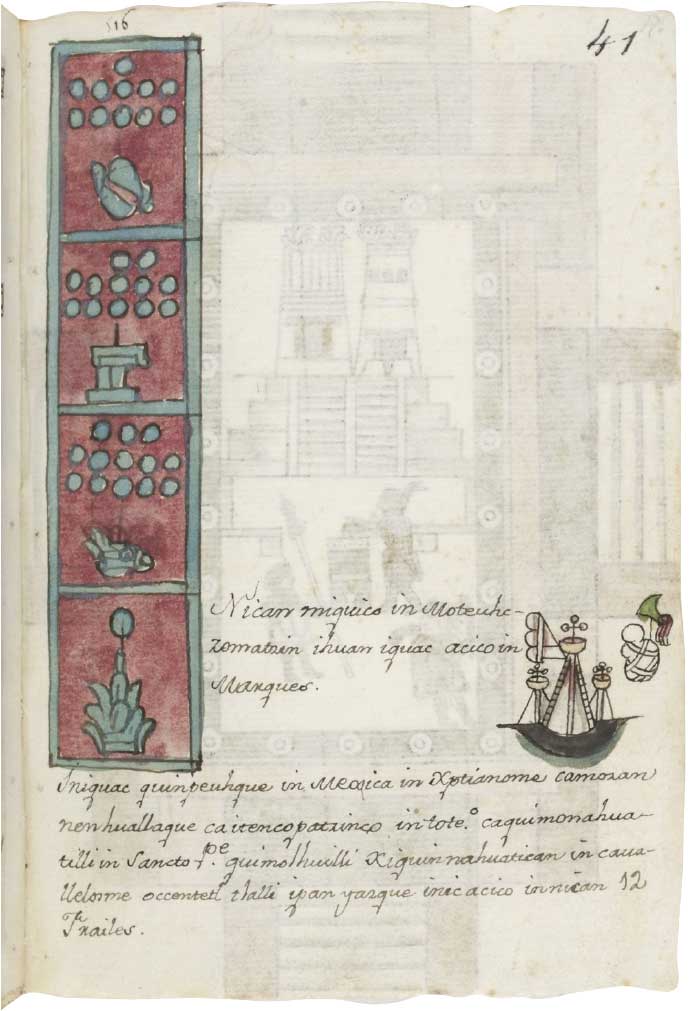 516
41
Nican miquico in Moteuhc-
zomatzin ihuan iquac acico in
Marques.
Iniquac quinpeuhque in Mexica in Xptianome camozan
nenhuallaque ca itencopatzinço in tote.º caquimonahua-
tilli in Sancto P.pe quimolhuilli Xiquinnahuatican in cava-
llerosme occentetl tlalli ipan yazque inic acico in nican 12
Frailes.